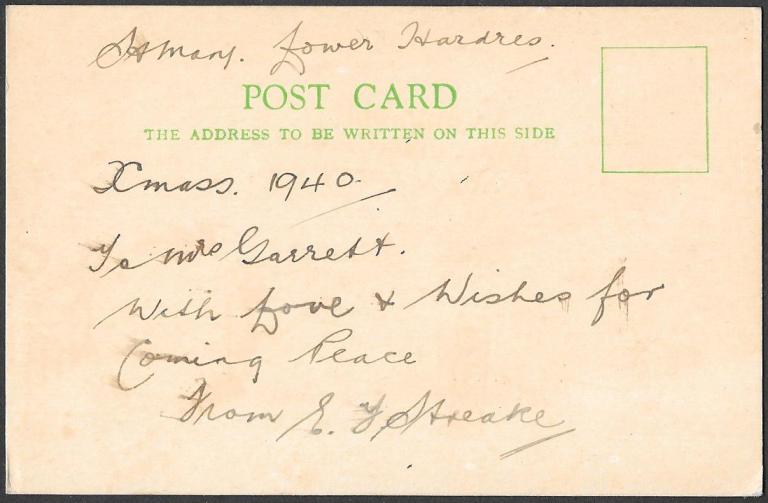 St Mary. Lower Hardres.
POST CARD
THE ADDRESS TO BE WRITTEN ON THIS SIDE
Xmass. 1940.
To Mrs Garrett.
With Love & Wishes for
Coming Peace
From E. Y. Streake